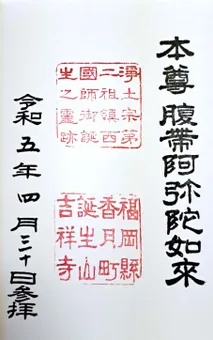 本尊 腹帯阿弥陀如来
浄土宗第
二祖鎮西
國師御誕
生之靈跡
福岡縣
香月町
誕生山
吉祥寺
令和五年四月三十日参拝